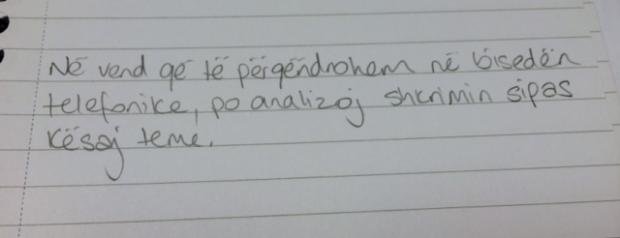 Në vend që të përqëndrohem në bisedën
telefonike, po analizoj shkrimin sipas
kësaj teme.